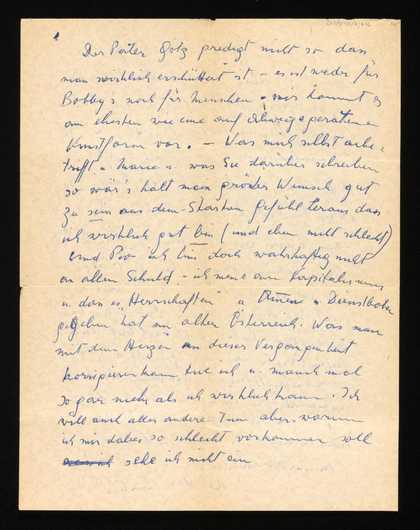 Der Pater Götz predigt nicht so dass
man wirklich erschüttert ist – es ist weder für
Bobby's noch für Menschen, mir kommt es
am ehesten wie eine auf geratene
Kunstform vor. – Was mich selbst anbe-
trifft u. was Sie darüber schreiben
so wär's halt mein größter Wunsch gut
zu sein aus dem starken Gefühl heraus dass
ich wirklich gut bin (und eben nicht schlecht)
und ich bin doch wahrhaftig nicht
an allem Schuld – ich meine am Kapitalismus
u. dan es "Herrschaften" u. Dienstboten
gegeben hat im alten Österreich. Was man
mit dem Herzen an dieser Vergangenheit
korrigieren kann, tue ich u. manchmal
sogar mehr als ich wirklich kann. Ich
will auch alles andere tun aber warum
ich mir dabei so schlecht vorkommen soll
sehe ich nicht ein